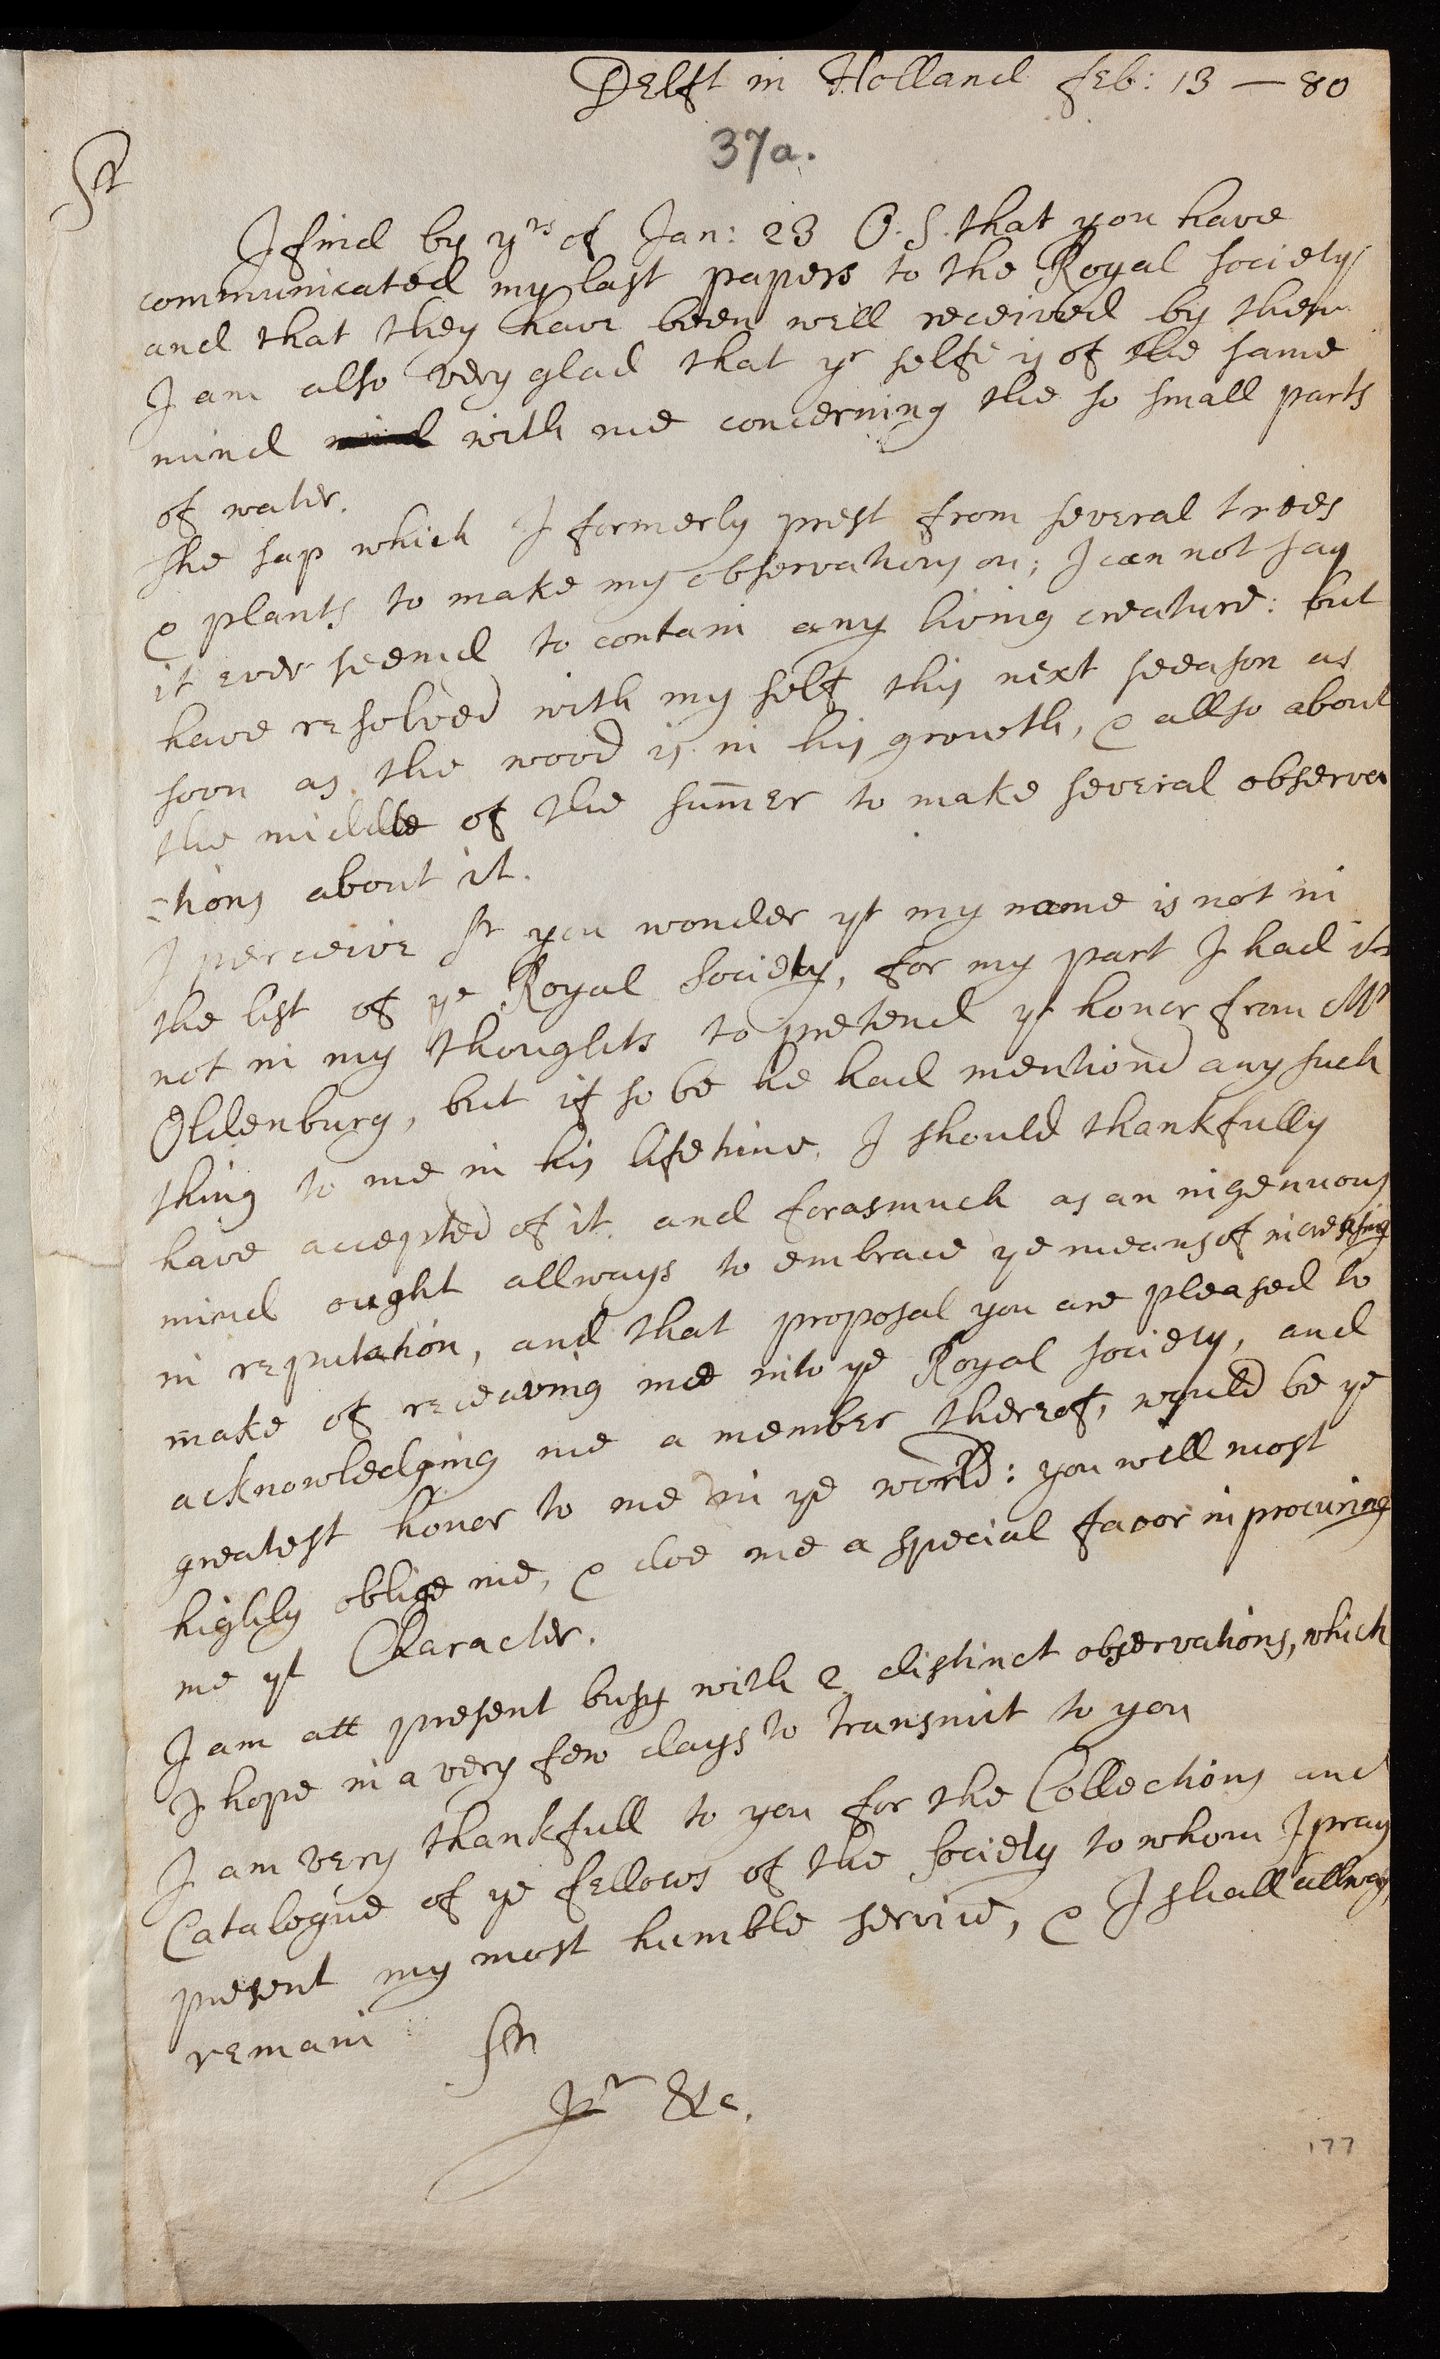 Delft in Holland feb: 13 — 80
37a.
Sr
I find by yrs of Jan: 23 O. S. that you have
communicated my last papers to the Royal society
and that they have been well received by them
I am also very glad that yr selfe is of the same
mind mind with me concerning the so small parts
of water.
The sap which I formerly prest from several trees
& plants to make my observations on; I can not say
it ever seemd to contain any living creature: but
have resolved with my self this next seeason as
soon as the wood is in his growth, & allso about
the middle of the sum̄er to make several observa
=tions about it.
I perceive Sr you wonder yt my name is not in
the list of ye Royal Society, for my part I had it
not in my thoughts to pretend yt honor from Mr
Oldenburg, but if so be he had mentiond any such
thing to me in his lifetime, I should thankfully
have accepted of it. and forasmuch as an ingenuous
mind ought allways to embrace ye means of increasing
in reputation, and that proposal you are pleased to
make of receaving me into ye Royal society, and
acknowledging me a member thereof, would be ye
greatest honor to me in ye world: you will most
highly oblige me, & doe me a special favor in procuring
me yt Character.
I am att present busy with 2 distinct observations, which
I hope in a very few days to transmit to you
I am very thankfull to you for the Collections and
Catalogue of ye fellows of the Society to whom I pray
present my most humble service, & I shall allways
remain Sr
Yr &c.
177